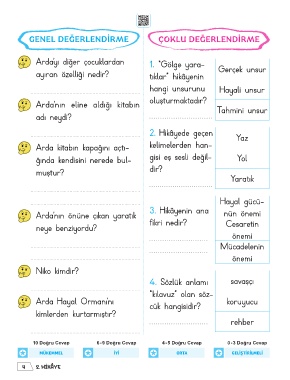 GENEL DEĞERLENDİRME
Arda'yı diğer çocuklardan
ayıran özelliği nedir?
Arda'nın eline aldığı kitabın
adı neydi?
Arda kitabın kapağını açtı-
ğında kendisini nerede bul-
muştur?
Arda'nın önüne çıkan yaratık
neye benziyordu?
Niko kimdir?
Arda Hayal Ormanını
kimlerden kurtarmıştır?
ÇOKLU DEĞERLENDİRME
1. "Gölge yara-
tıklar" hikâyenin
hangi unsurunu
oluşturmaktadır?
Gerçek unsur
Hayali unsur
Tahmini unsur
2. Hikâyede geçen
kelimelerden han-
gisi eş sesli değil-
dir?
Yaz
Yol
Yaratık
3. Hikâyenin ana
fikri nedir?
Hayal gücü-
nün önemi
Cesaretin
önemi
Mücadelenin
önemi
4. Sözlük anlamı
"kılavuz" olan söz-
cük hangisidir?
savaşçı
koruyucu
rehber
10 Doğru Cevap
MÜKEMMEL
6-9 Doğru Cevap
İYİ
4-5 Doğru Cevap
ORTA
0-3 Doğru Cevap
GELİŞTİRMELİ
4 2. HİKÂYE